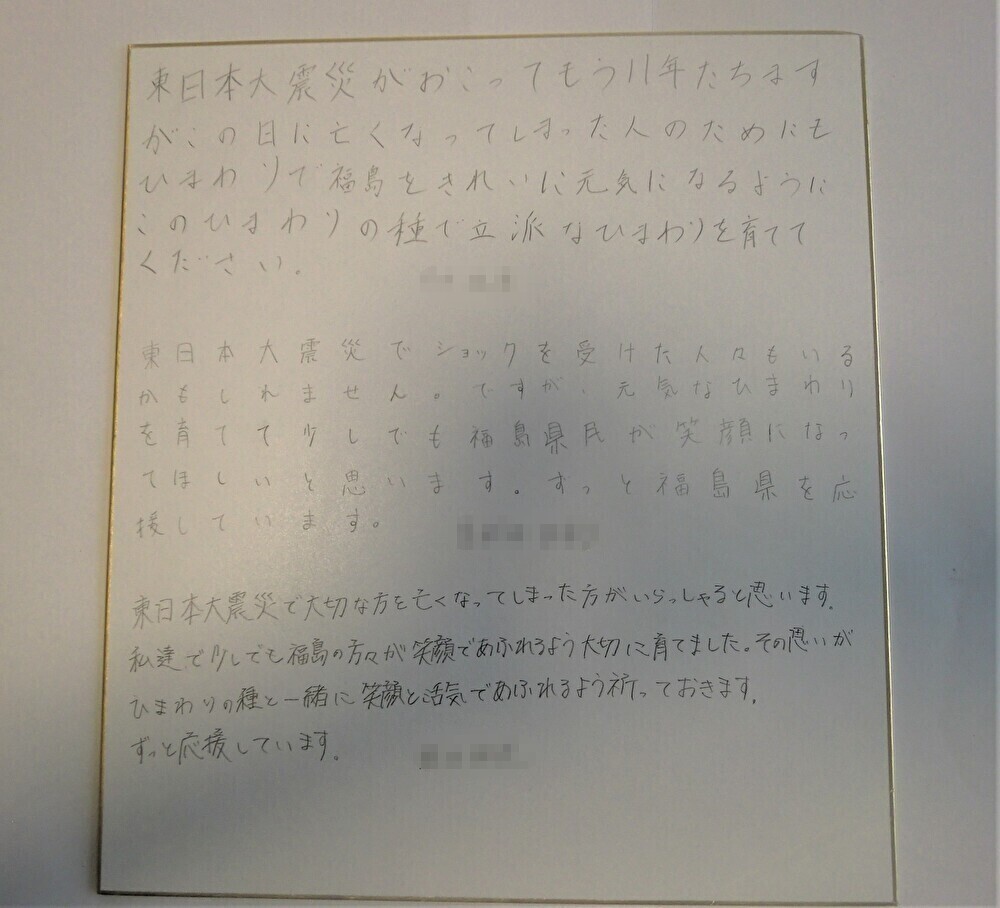 東日本大震災がおこってもう11年たちます
がこの日に亡くなってしまった人のためにも
ひまわりで福島をきれいに元気になるように
このひまわりの種で立派なひまわりを育てて
ください。
東日本大震災でショックを受けた人々もいる
かもしれません。ですが、元気なひまわり
を育てて少しでも福島県民が笑顔になっ
てほしいと思います。ずっと福島県を応
援しています。
東日本大震災で大切な方を亡くなってしまった方がいらっしゃると思います。
私達で少しでも福島の方々が笑顔であふれるよう大切に育てました。その思いが
ひまわりの種と一緒に笑顔と活気であふれるよう祈っておきます。
ずっと応援しています。